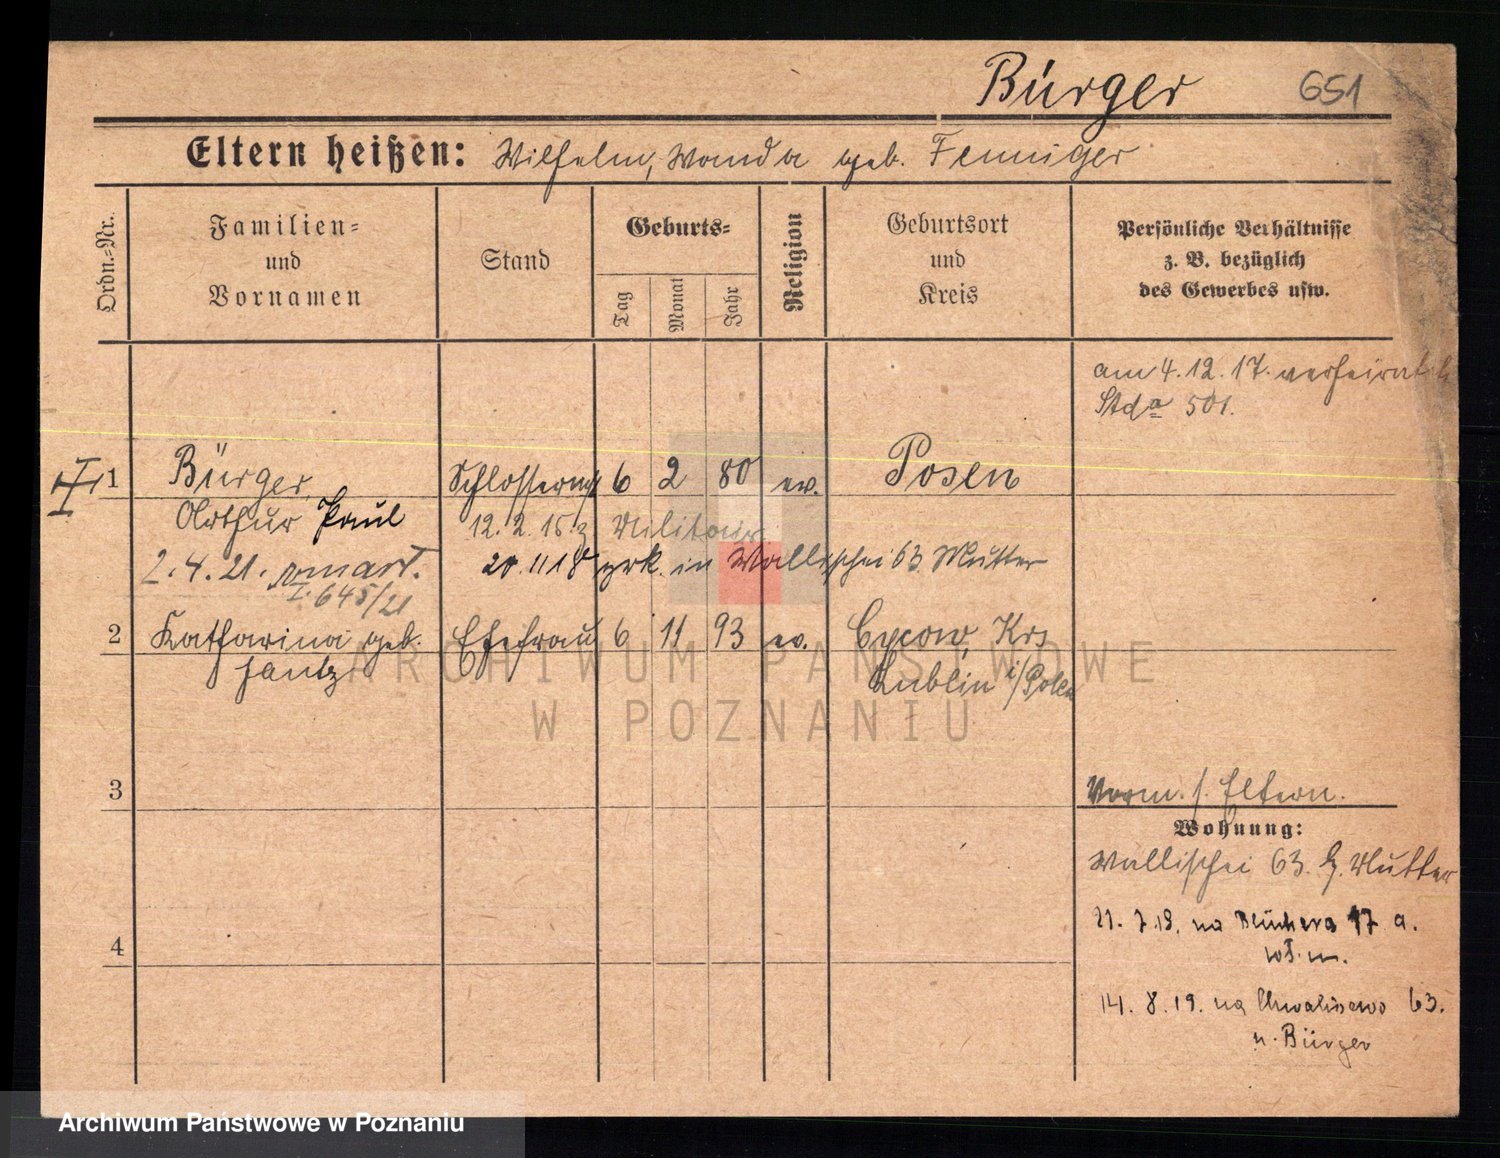 Bürger 651
Eltern heißen: Wilhelm, Wanda geb. Fenniger
Ordn.-Nr.
Familien=
und
Vornamen
Stand
Geburts=
Tag
Monat
Jahr
Religion
Geburtsort
und
Kreis
Persönliche Verhältnisse
z. B. bezüglich
des Gewerbes usw.
am 4.12.17. verheiratet
Stda 501.
I 1 Bürger Schlosser 6 2 80 ev. Posen
Arthur Paul 12.2.15 z Militär
2.4.21. 20.11 18 zrk. in Wallischei 63 Mutter
I. 645/21
2 Katharina geb. Ehefrau 6 11 93 ev. Cycow, Krs
Jantz Lublin i/Polen
3
Vorm. s. Eltern.
Wohnung:
Wallischei 63. b. Mutter
4
21.7.19. na Blüchera 17 a.
wł. m.
14.8.19. na Chwaliszewo 63.
u. Bürger
ARCHIWUM PAŃSTWOWE
W POZNANIU
Archiwum Państwowe w Poznaniu